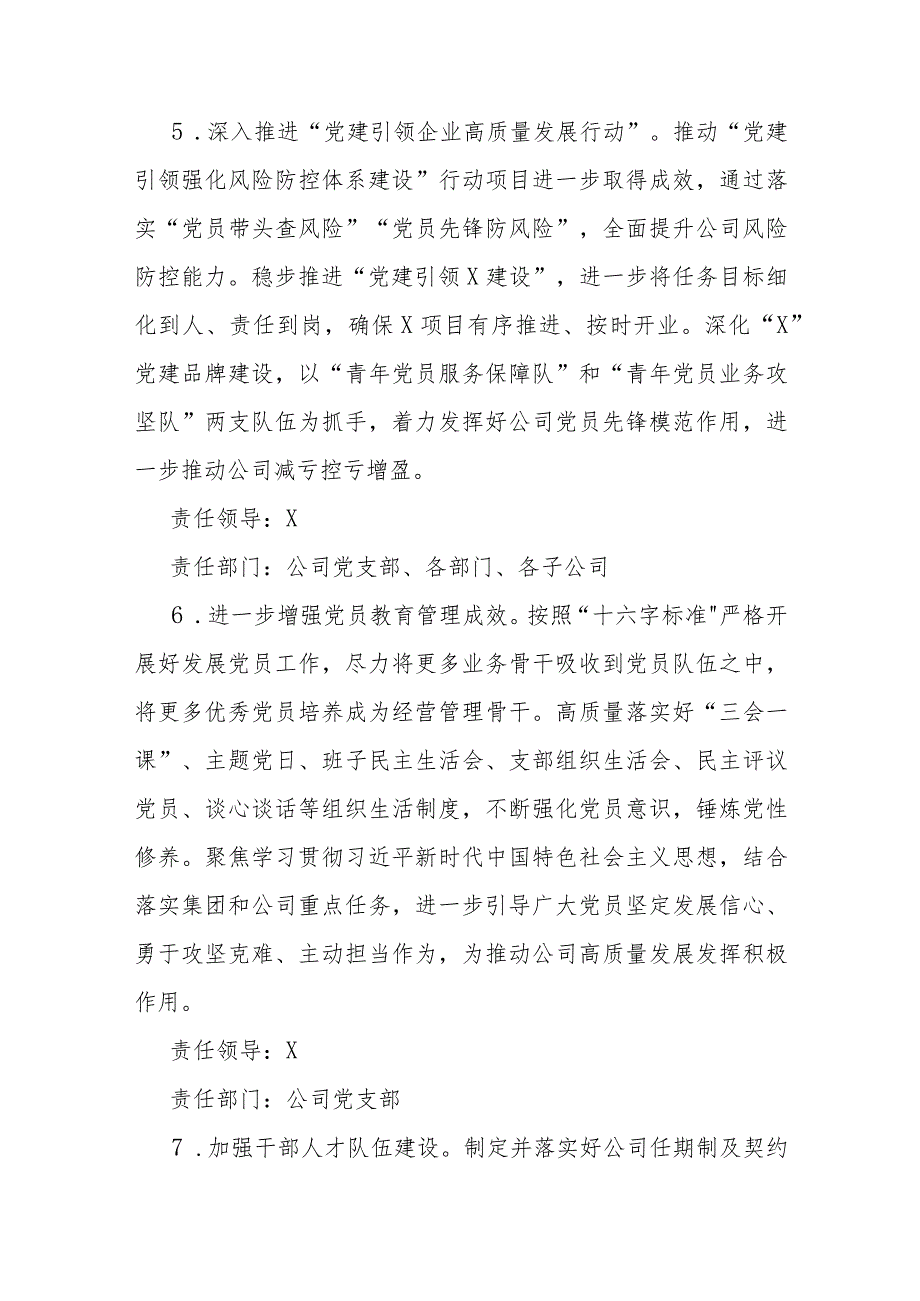 5.深入推进“党建引领企业高质量发展行动”。推动“党建
引领强化风险防控体系建设”行动项目进一步取得成效，通过落
实“党员带头查风险”“党员先锋防风险”，全面提升公司风险
防控能力。稳步推进“党建引领X建设”，进一步将任务目标细
化到人、责任到岗，确保X项目有序推进、按时开业。深化“X”
党建品牌建设，以“青年党员服务保障队”和“青年党员业务攻
坚队”两支队伍为抓手，着力发挥好公司党员先锋模范作用，进
一步推动公司减亏控亏增盈。
责任领导：X
责任部门：公司党支部、各部门、各子公司
6.进一步增强党员教育管理成效。按照“十六字标准"严格开
展好发展党员工作，尽力将更多业务骨干吸收到党员队伍之中，
将更多优秀党员培养成为经营管理骨干。高质量落实好“三会一
课”、主题党日、班子民主生活会、支部组织生活会、民主评议
党员、谈心谈话等组织生活制度，不断强化党员意识，锤炼党性
修养。聚焦学习贯彻习近平新时代中国特色社会主义思想，结合
落实集团和公司重点任务，进一步引导广大党员坚定发展信心、
勇于攻坚克难、主动担当作为，为推动公司高质量发展发挥积极
作用。
责任领导：X
责任部门：公司党支部
7.加强干部人才队伍建设。制定并落实好公司任期制及契约